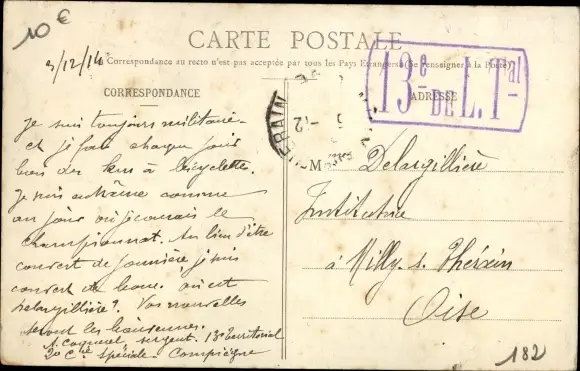 10 €
3/12/14
CARTE POSTALE
Correspondance au recto n'est pas acceptée par tous les Pays Etrangers (Se renseigner à la Poste)
13e
DE L. Tal
CORRESPONDANCE
ADRESSE
Je suis toujours militaire
et je fais chaque jour
bois des kms à bicyclette.
Je suis entraîné comme
au jour où je courais le
championnat. Au lieu d'être
couvert de poussière je suis
couvert de boue. où est
Delargillière? Vos nouvelles
seront les bienvenues.
A. Coquerel sergent. 13e Territorial
20e Cie spéciale - Compiègne
M Delargillière
Instituteur
à Milly-s-Thérain
Oise
182